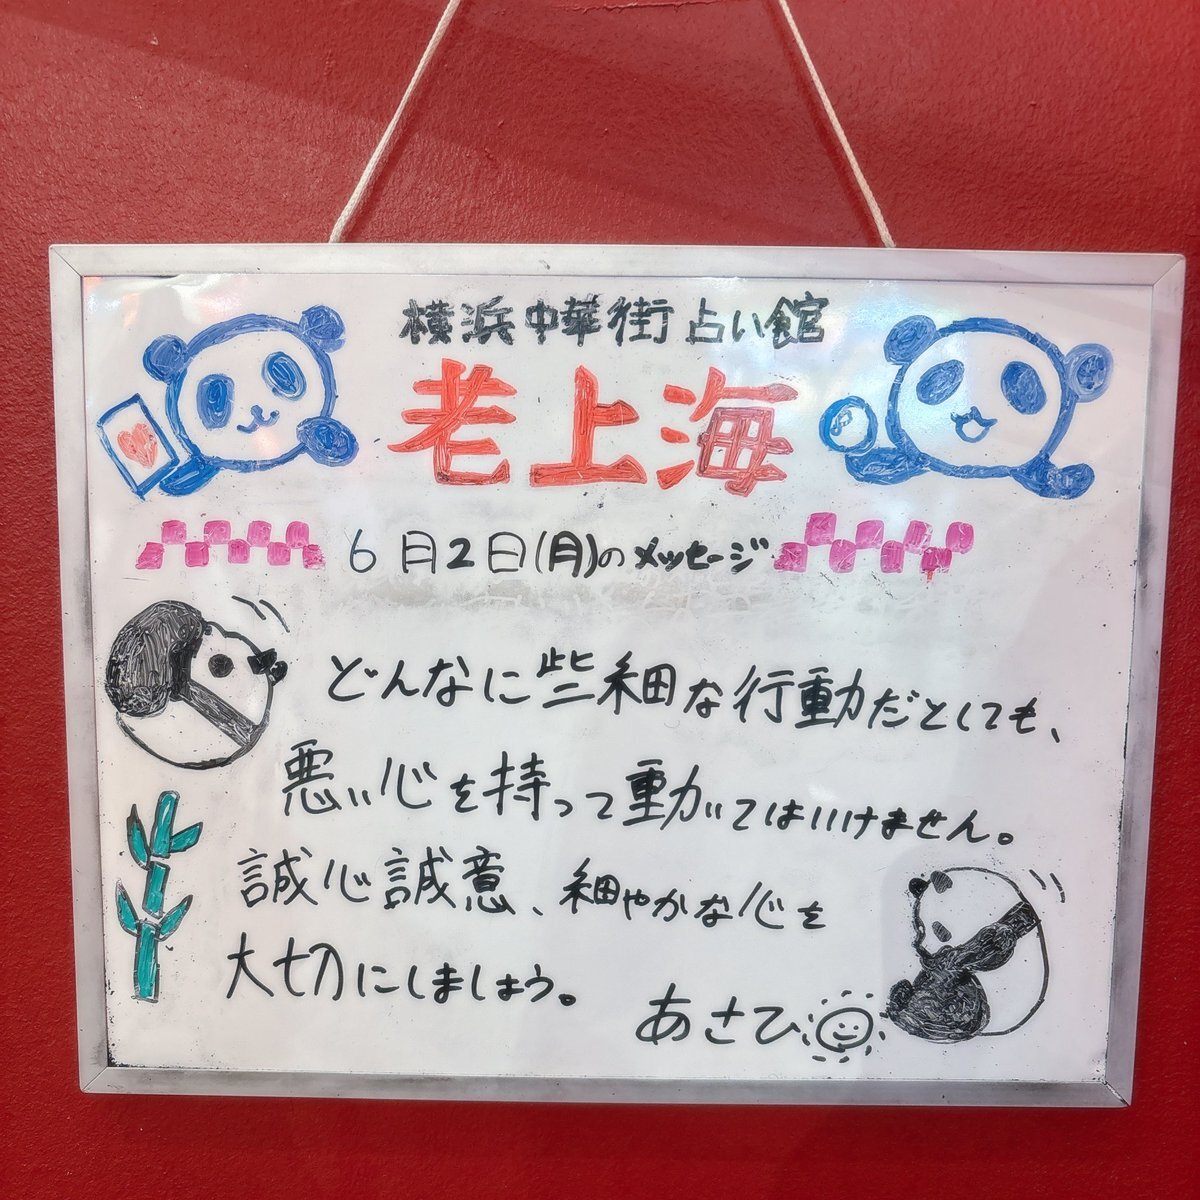 横浜中華街占い館
老上海
6月2日(月)のメッセージ
どんなに些細な行動だとしても、
悪い心を持って動いてはいけません。
誠心誠意、細やかな心を
大切にしましょう。
あさひ